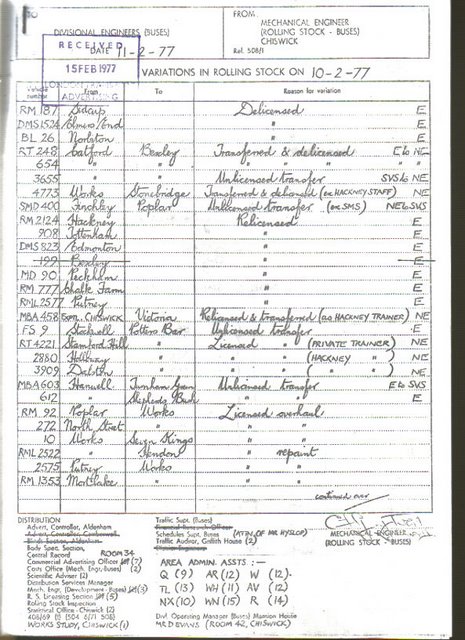 TO
FROM
MECHANICAL ENGINEER
(ROLLING STOCK - BUSES)
CHISWICK
Ref. 508/1
DIVISIONAL ENGINEERS (BUSES)
RECEIVED
DATE 11-2-77
15 FEB 1977
ADVERTISING
VARIATIONS IN ROLLING STOCK ON 10-2-77
Vehicle number From To Reason for variation
RM 187 Sidcup Delicensed E
DMS 1524 Elmers End " E
BL 26 Norbiton " E
RT 248 Catford Bexley Transferred & delicensed E to NE
654 " " " " " "
3655 " " Unlicensed transfer SVS to NE
4773 Works Stonebridge Transferred & delicensed (ex HACKNEY STAFF) NE
SMD 400 Finchley Poplar Unlicensed transfer (ex SMS) NE to SVS
RM 2124 Hackney Relicensed E
908 Tottenham " E
DMS 823 Edmonton " E
199 Bexley " E
MD 90 Peckham " E
RM 777 Chalk Farm " E
RML 2577 Putney " E
MBA 458 Exptl. CHISWICK Victoria Relicensed & transferred (as HACKNEY TRAINER) NE
FS 9 Stockwell Potters Bar Unlicensed transfer E
RT 4221 Stamford Hill " Licensed " (PRIVATE TRAINER) NE
2880 Holloway " " " (HACKNEY " ) NE
3909 Dalston " " " ( " " ) NE
MBA 603 Hanwell Turnham Green Unlicensed transfer E to SVS
612 " Shepherds Bush " " E
RM 92 Poplar Works Licensed overhaul
272 North Street " " "
10 Works Seven Kings " "
RML 2522 " Hendon " repaint
2575 Putney Works " "
RM 1353 Mortlake " " "
continued over
DISTRIBUTION
Advert. Controller, Aldenham
Body Spec. Section,
Central Record ROOM 34
Commercial Advertising Officer (7)
Costs Office (Mech. Engr.-Buses) (2)
Scientific Adviser (2)
Distribution Services Manager
Mech. Engr. (Development - Buses) (3)
R. S. Licensing Section (5)
Rolling Stock Inspection
Statistical Office - Chiswick (2)
WORKS STUDY, CHISWICK (1)
Traffic Supt. (Buses)
Financial Research Officer
Schedules Supt. (Buses) (ATTN. OF MR HYSLOP)
Traffic Auditor, Griffith House (2)
Division Engineers
AREA ADMIN. ASSTS :-
Q (9) AR (12) W (12).
TL (13) WH (11) AV (12)
NX (10) WN (15) R (14)
Divl. Operating Manager (Buses) Mansion House
MR D EVANS (ROOM 42, CHISWICK)
MECHANICAL ENGINEER
(ROLLING STOCK - BUSES)